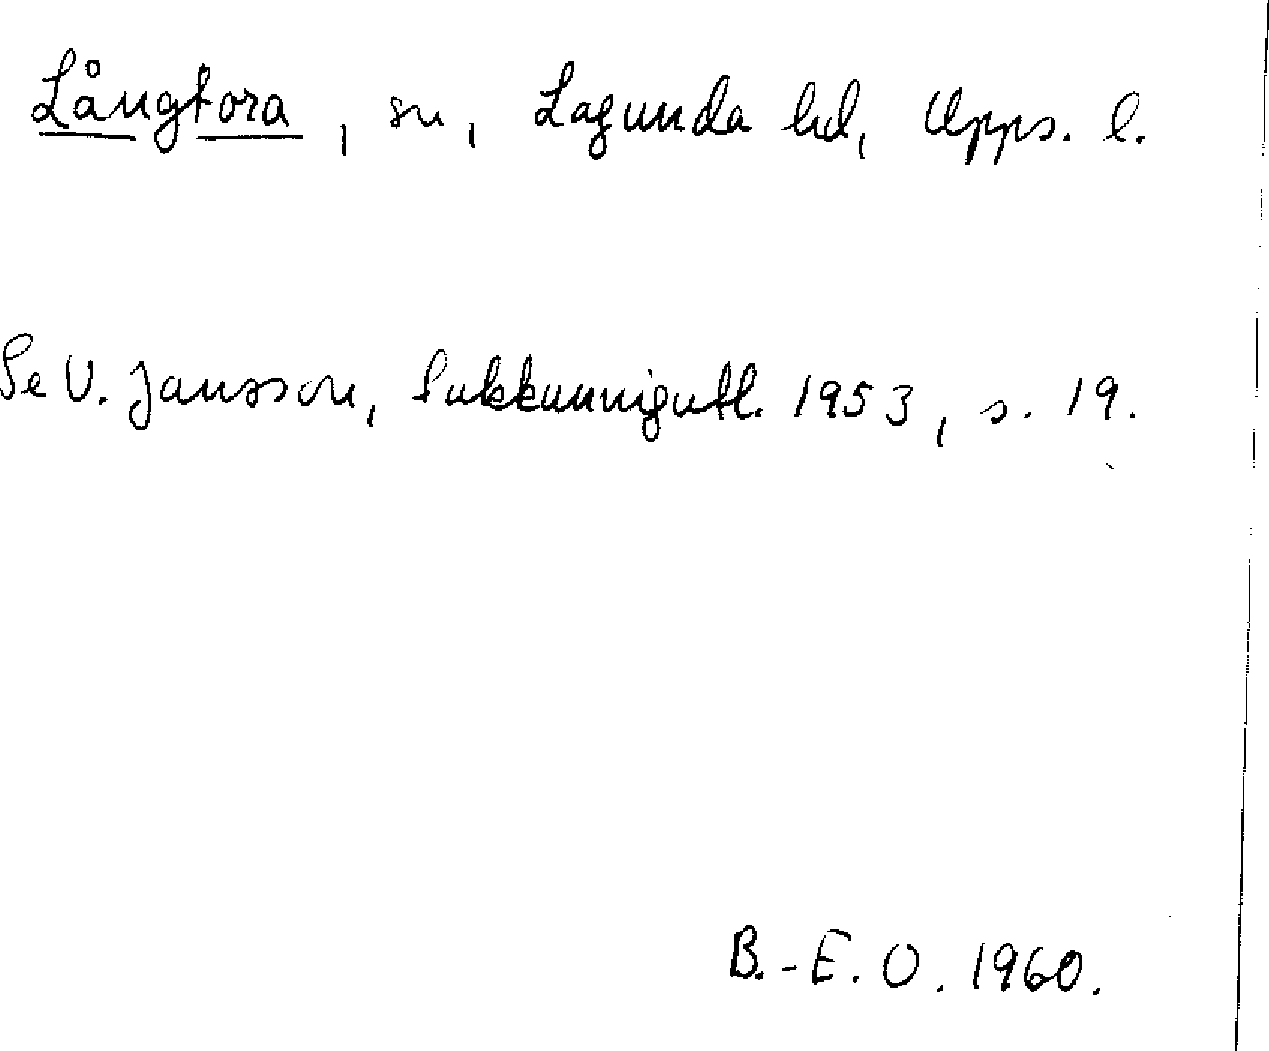 Långtora, sn, Lagunda hd, Upps. l.
Se V. Jansson, Sakkunnigutl. 1953, s. 19.
B.-E. O. 1960.